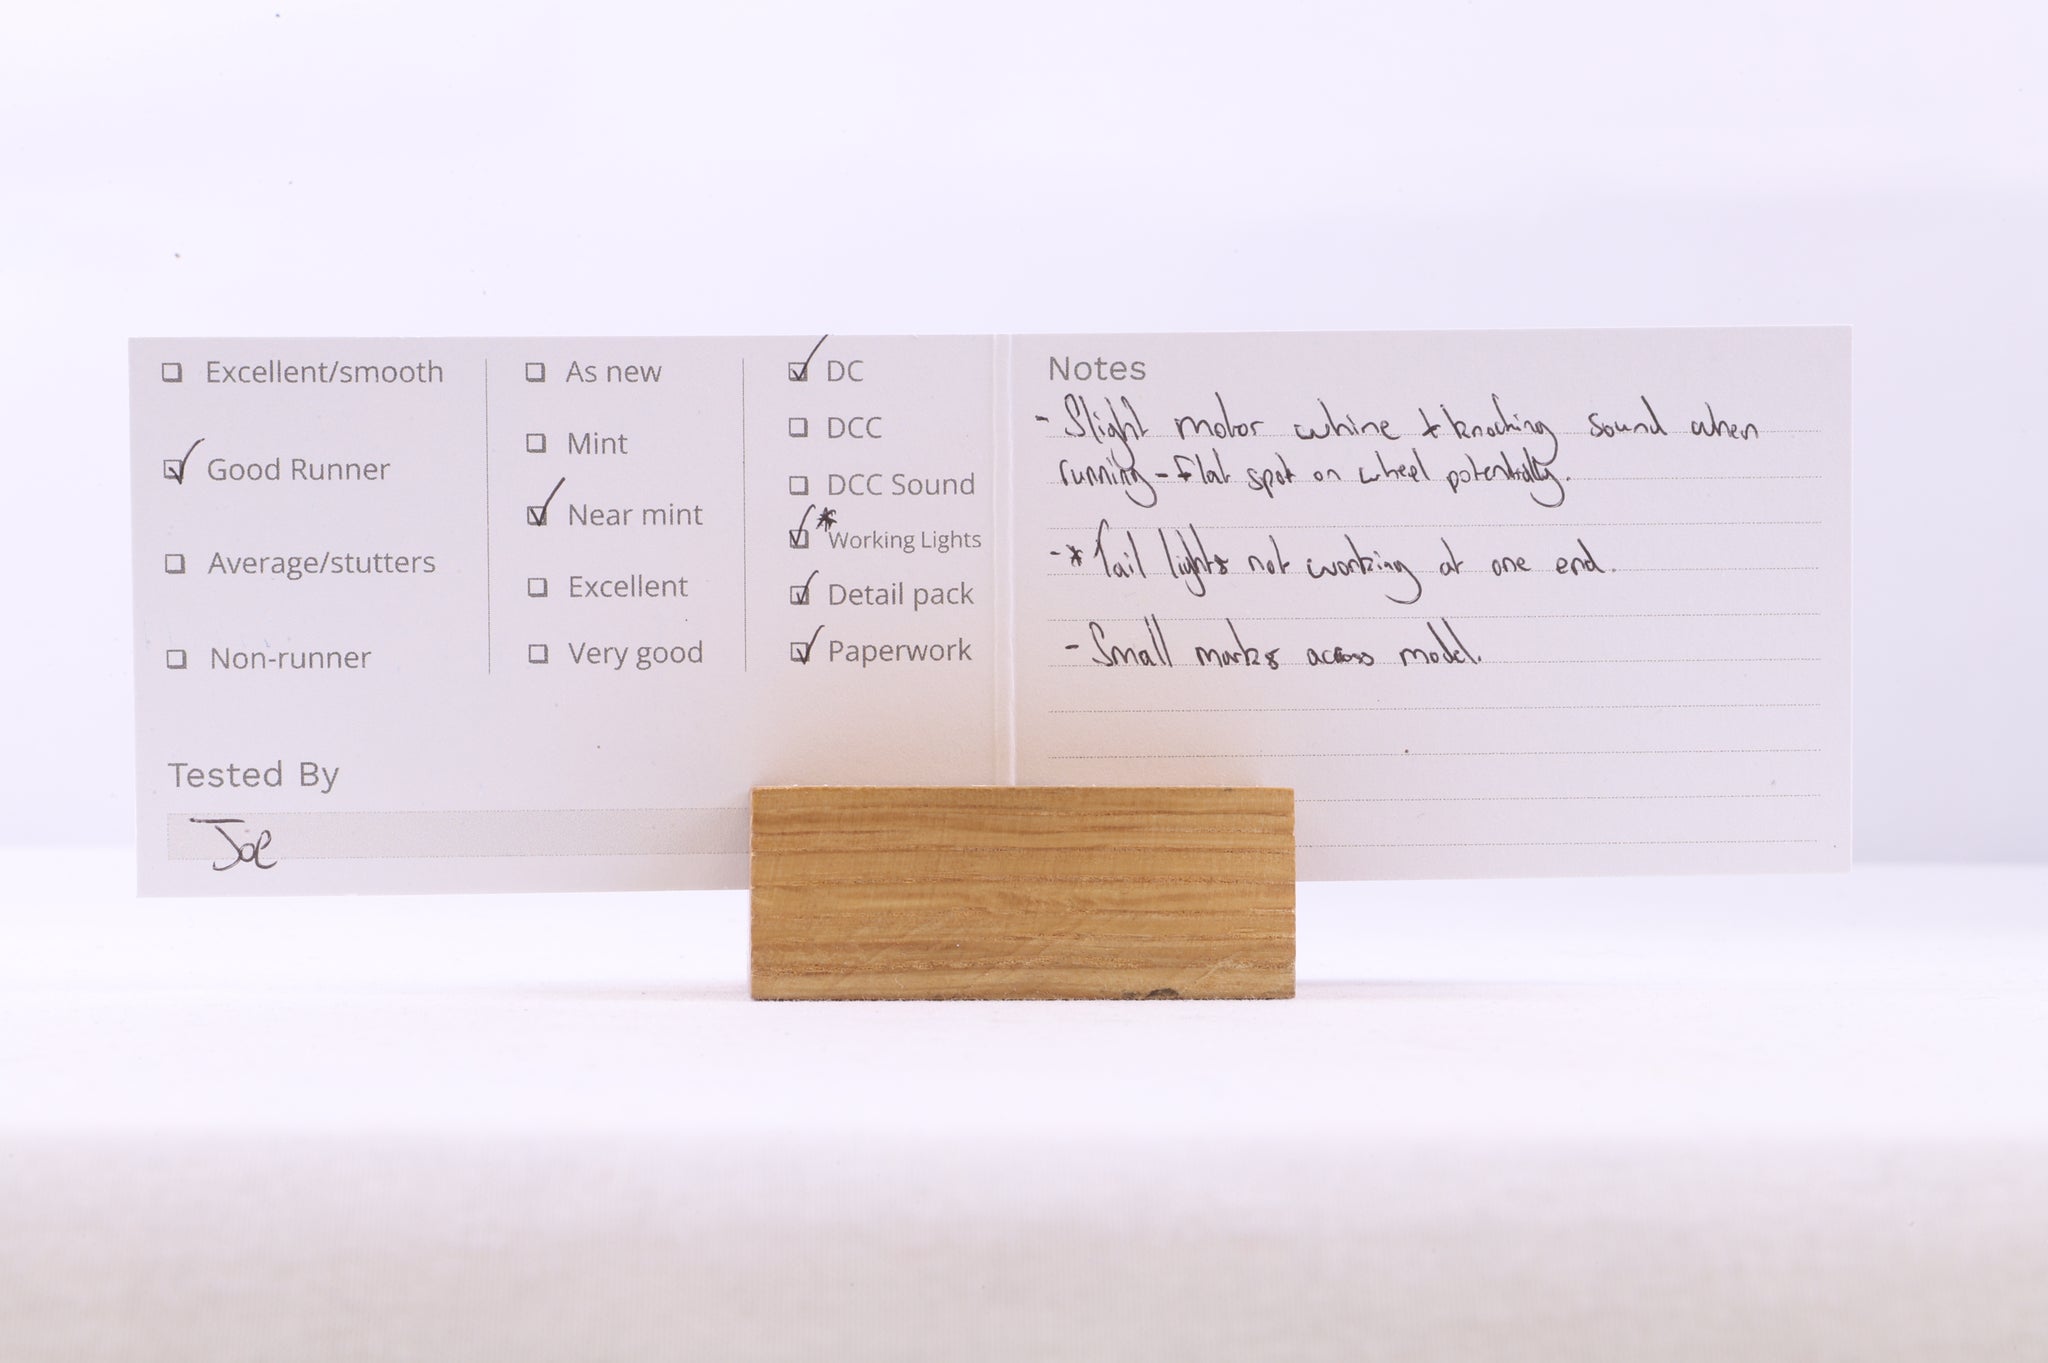 ☐ Excellent/smooth
☑ Good Runner
☐ Average/stutters
☐ Non-runner
☐ As new
☐ Mint
☑ Near mint
☐ Excellent
☐ Very good
☑ DC
☐ DCC
☐ DCC Sound
☑ * Working Lights
☑ Detail pack
☑ Paperwork
Tested By
Joe
Notes
- Slight motor whine + knocking sound when
running - flat spot on wheel potentially.
- * Tail lights not working at one end.
- Small marks across model.